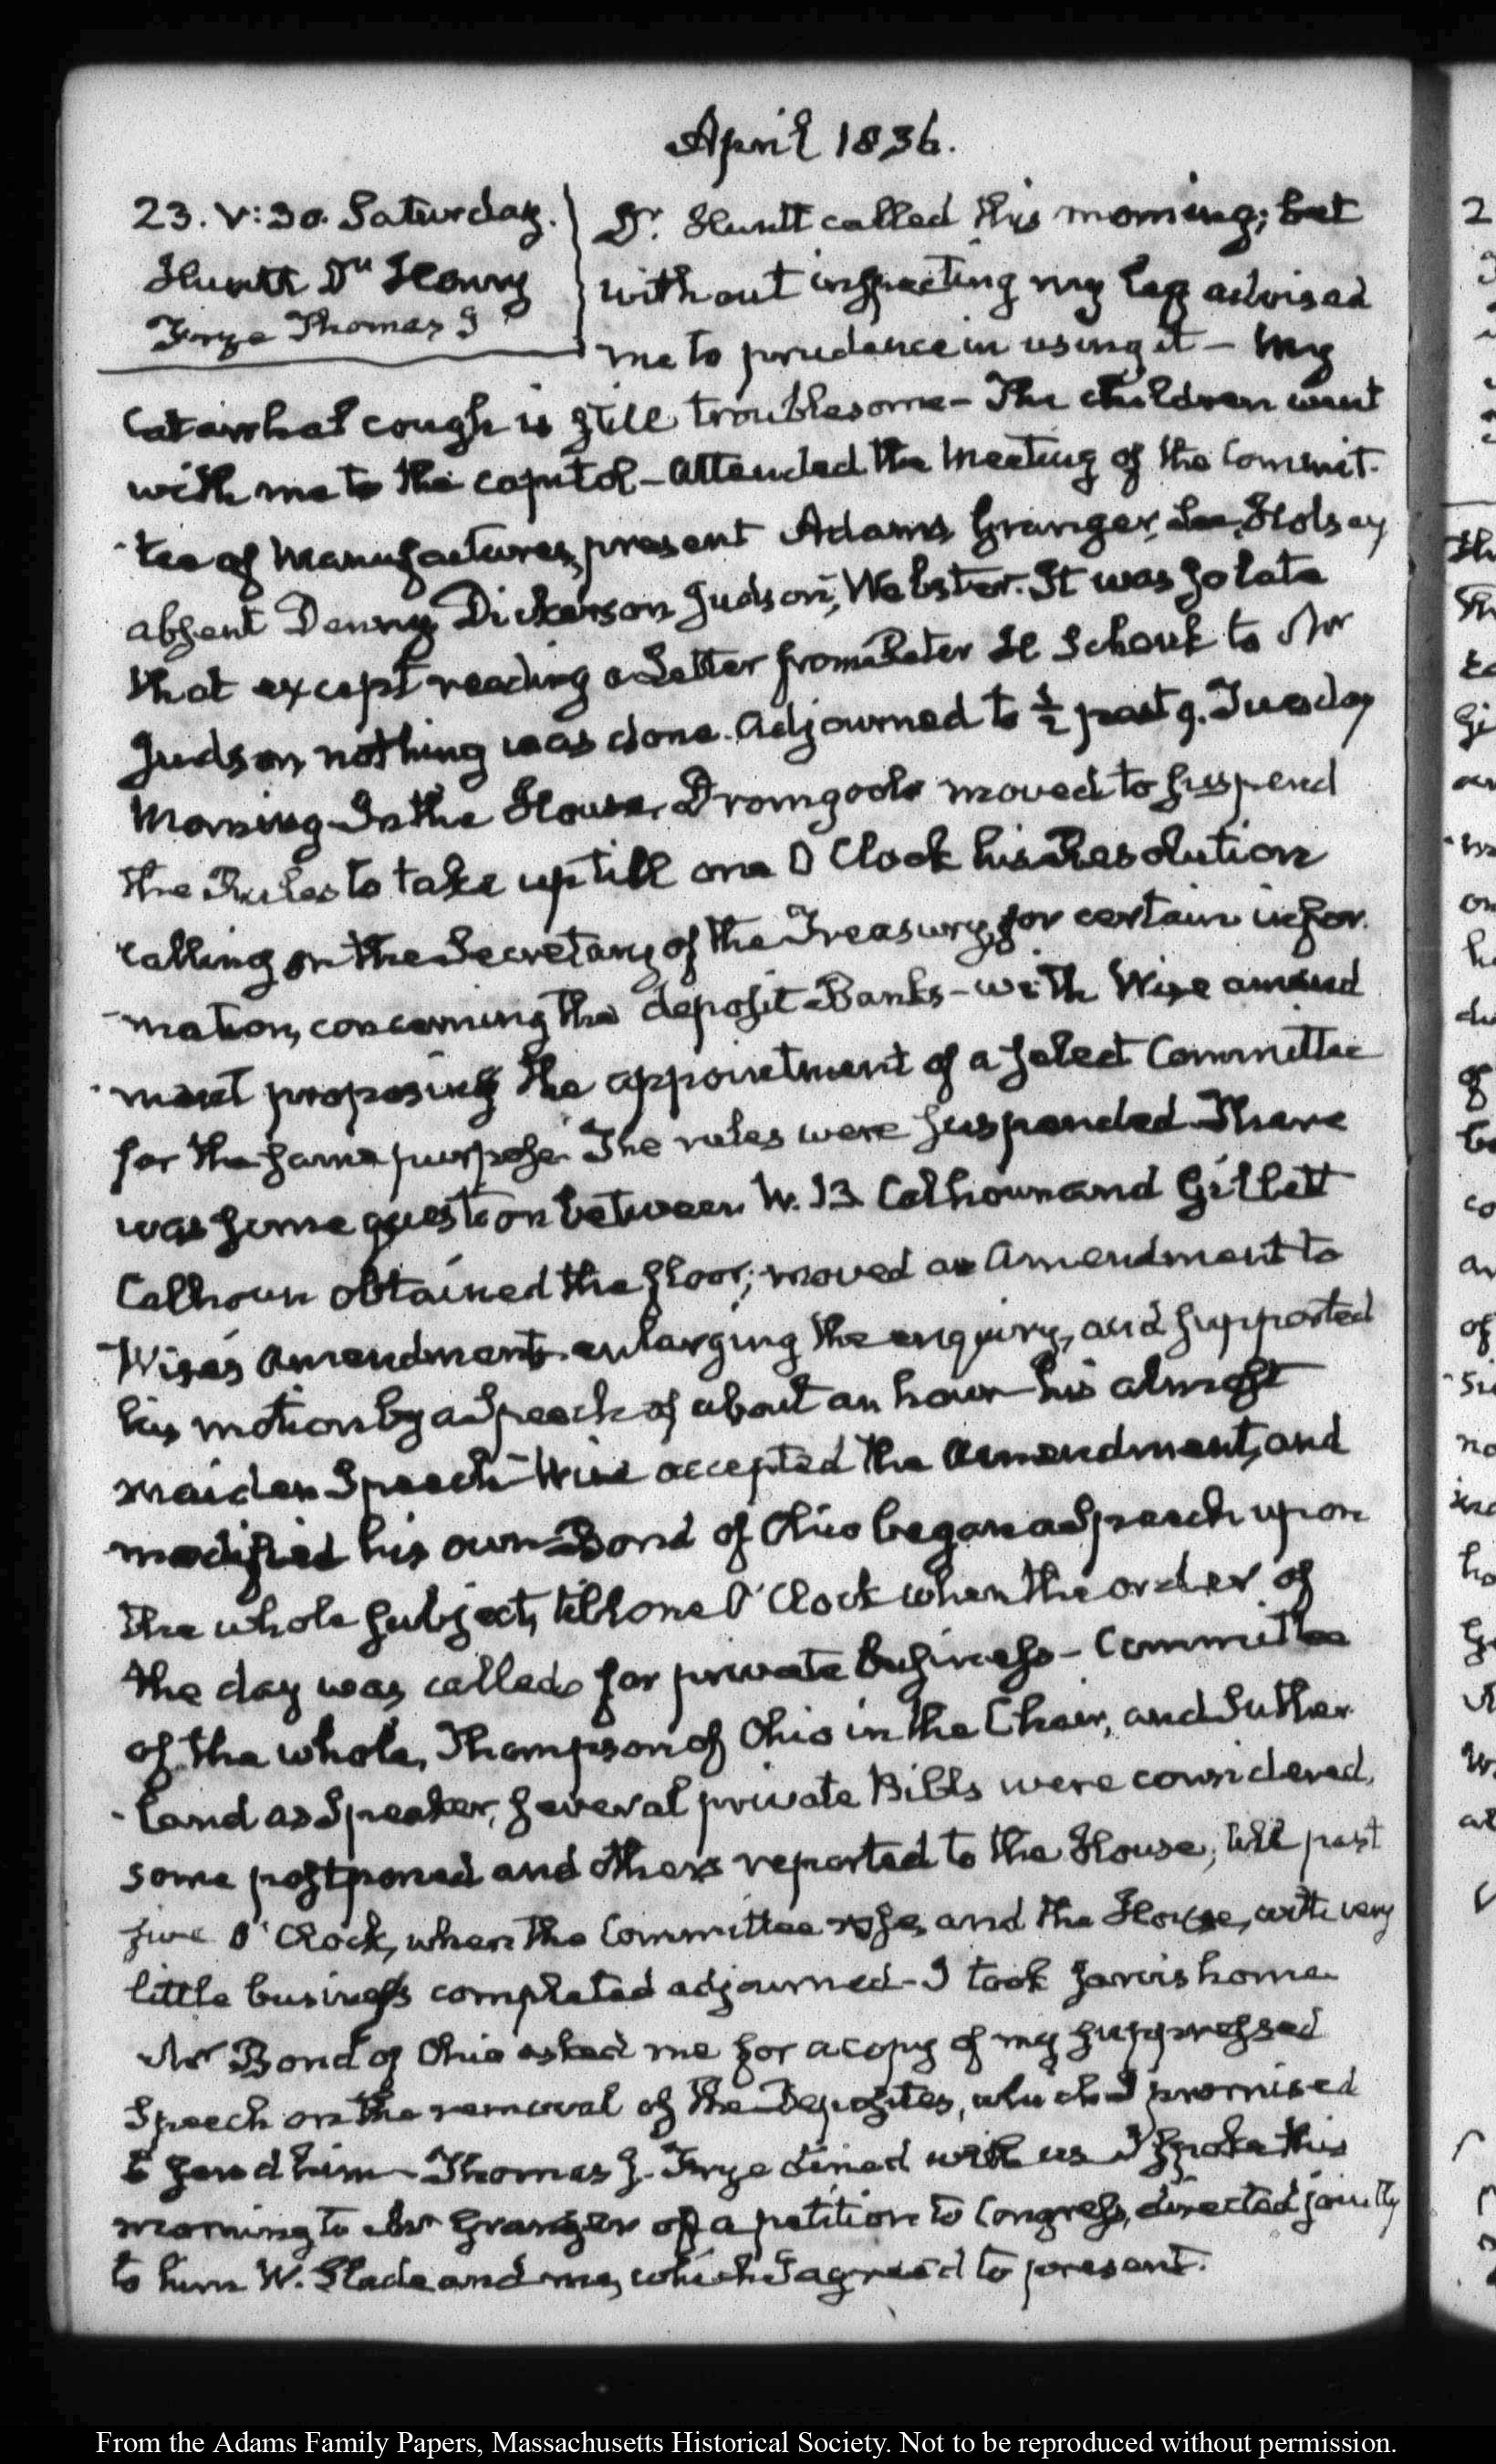 April 1836.
23. V:30. Saturday.
Huntt Dr Henry
Frye Thomas J
Dr. Huntt called this morning; but
without inspecting my leg advised
me to prudence in using it — My
Catarrhal cough is still troublesome — The children went
with me to the capitol — Attended the Meeting of the Commit-
tee of Manufactures, present Adams Granger, Lee, Halsey
absent Denny Dickerson Judson, Webster. It was so late
that except reading a Letter from Peter H Schenk to Mr
Judson, nothing was done. Adjourned to ½ past 9. Tuesday
Morning — In the House, Dromgoole moved to suspend
the Rules to take up till one O'Clock his Resolution
calling on the Secretary of the Treasury, for certain infor-
mation, concerning the deposit Banks — with Wise amend
ment proposing the appointment of a select Committee
for the same purpose. The rules were suspended. There
was some question between W. B. Calhoun and Gillett
Calhoun obtained the floor; moved an amendment to
Wise's Amendment enlarging the enquiry, and supported
his motion by a Speech of about an hour — his almost
maiden Speech — Wise accepted the Amendment, and
modified his own — Bond of Ohio began a Speech upon
the whole subject, till one O'Clock when the order of
the day was called for private business — Committee
of the whole, Thompson of Ohio in the Chair, and Suther-
land as Speaker, several private Bills were considered,
some postponed and others reported to the House, till past
five O'Clock, when the Committee rose, and the House, with very
little business completed adjourned — I took Jarvis home.
Mr Bond of Ohio asked me for a copy of my suppressed
Speech on the removal of the Deposites, which I promised
to send him — Thomas J. Frye dined with us I spoke this
morning to Mr Granger of a petition to Congress, directed jointly
to him W. Slade and me, which I agreed to present.
From the Adams Family Papers, Massachusetts Historical Society. Not to be reproduced without permission.